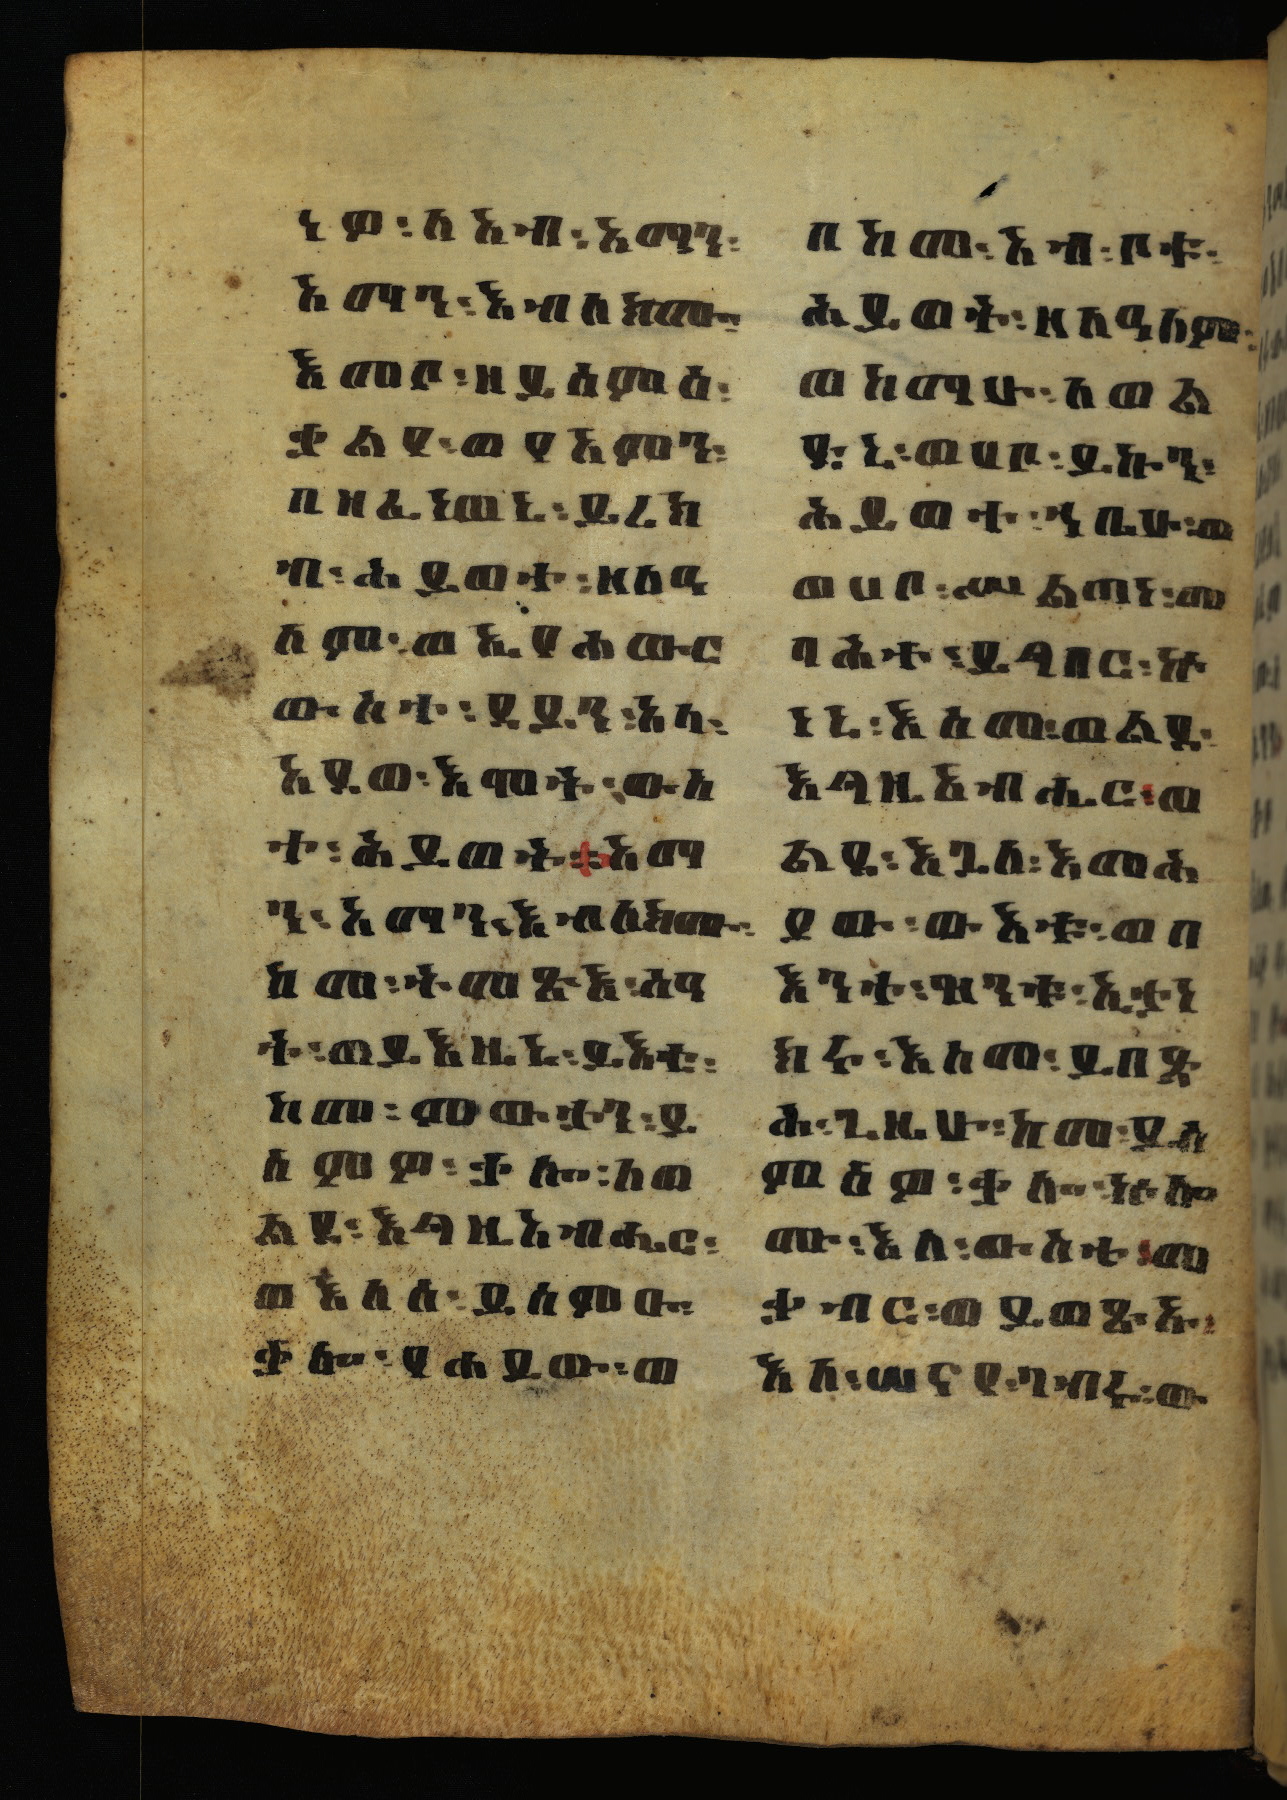 ነዎ፡ለአብ፡አማን፡
አማን፡እብለክሙ፡
እመቦ፡ዘይሰምዕ፡
ቃልየ፡ወየአምን፡
በዘፈነወኒ፡ይረክ
ብ፡ሕይወተ፡ዘለዓ
ለም፡ወኢየሐውር
ውስተ፡ደይን፡አላ፡
እደወ፡እሞት፡ውስ
ተ፡ሕይወት፡አማ
ን፡አማን፡እብለክሙ፡
ከመ፡ትመጽእ፡ሰዓ
ት፡ወይእዜኒ፡ይእቲ፡
ከመ፡ምውታን፡ይ
ሰምዎ፡ቃሎ፡ለወ
ልደ፡እግዚአብሔር፡
ወእለ፡ይሰምዑ፡
ቃሎ፡የሐይው፡ወ
በከመ፡አብ፡ቦቱ፡
ሕይወት፡ዘለዓለም፡
ወከማሁ፡ለወል
ዱ፡ኒ፡ወሀቦ፡ይኩን፡
ሕይወተ፡ኀቤሁ፡ወ
ወሀቦ፡ሥልጣነ፡መ
ባሕት፡ይግበር፡ኵ
ነኔ፡እስመ፡ወልደ፡
እግዚአብሔር፡ወ
ልደ፡እጓለ፡እመሕ
ያው፡ውእቱ፡ወበ
እንተ፡ዝንቱ፡ኢታን
ክሩ፡እስመ፡ይበጽ
ሕ፡ጊዜሁ፡ከመ፡ይሰ
ምዕዎ፡ቃሎ፡ኵሎ
ሙ፡እለ፡ውስተ፡መ
ቃብር፡ወይወጽኡ፡
እለ፡ሠናየ፡ገብሩ፡ው